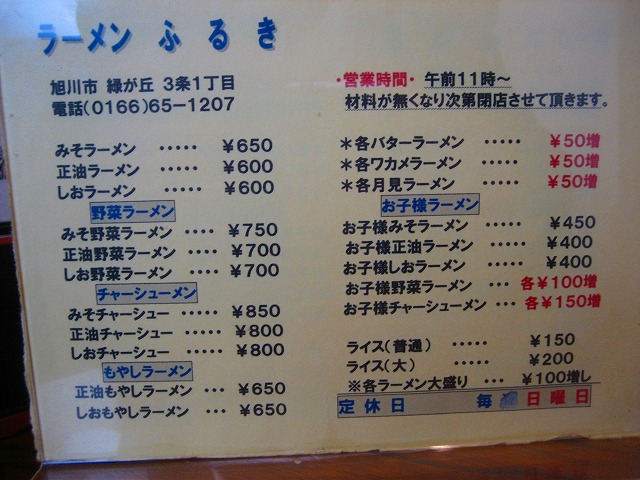 ラーメン ふるき
旭川市 緑が丘 3条1丁目
電話(0166)65-1207
みそラーメン ····· ¥650
正油ラーメン ····· ¥600
しおラーメン ····· ¥600
野菜ラーメン
みそ野菜ラーメン ···· ¥750
正油野菜ラーメン ···· ¥700
しお野菜ラーメン ···· ¥700
チャーシューメン
みそチャーシュー ····· ¥850
正油チャーシュー ···· ¥800
しおチャーシュー ···· ¥800
もやしラーメン
正油もやしラーメン ··· ¥650
しおもやしラーメン ··· ¥650
・営業時間・ 午前11時~
材料が無くなり次第閉店させて頂きます。
*各バターラーメン ····· ¥50増
*各ワカメラーメン ····· ¥50増
*各月見ラーメン ····· ¥50増
お子様ラーメン
お子様みそラーメン ····· ¥450
お子様正油ラーメン ···· ¥400
お子様しおラーメン ···· ¥400
お子様野菜ラーメン ··· 各¥100増
お子様チャーシューメン ··· 各¥150増
ライス(普通) ····· ¥150
ライス(大) ····· ¥200
※各ラーメン大盛り ··· ¥100増し
定休日 毎週日曜日